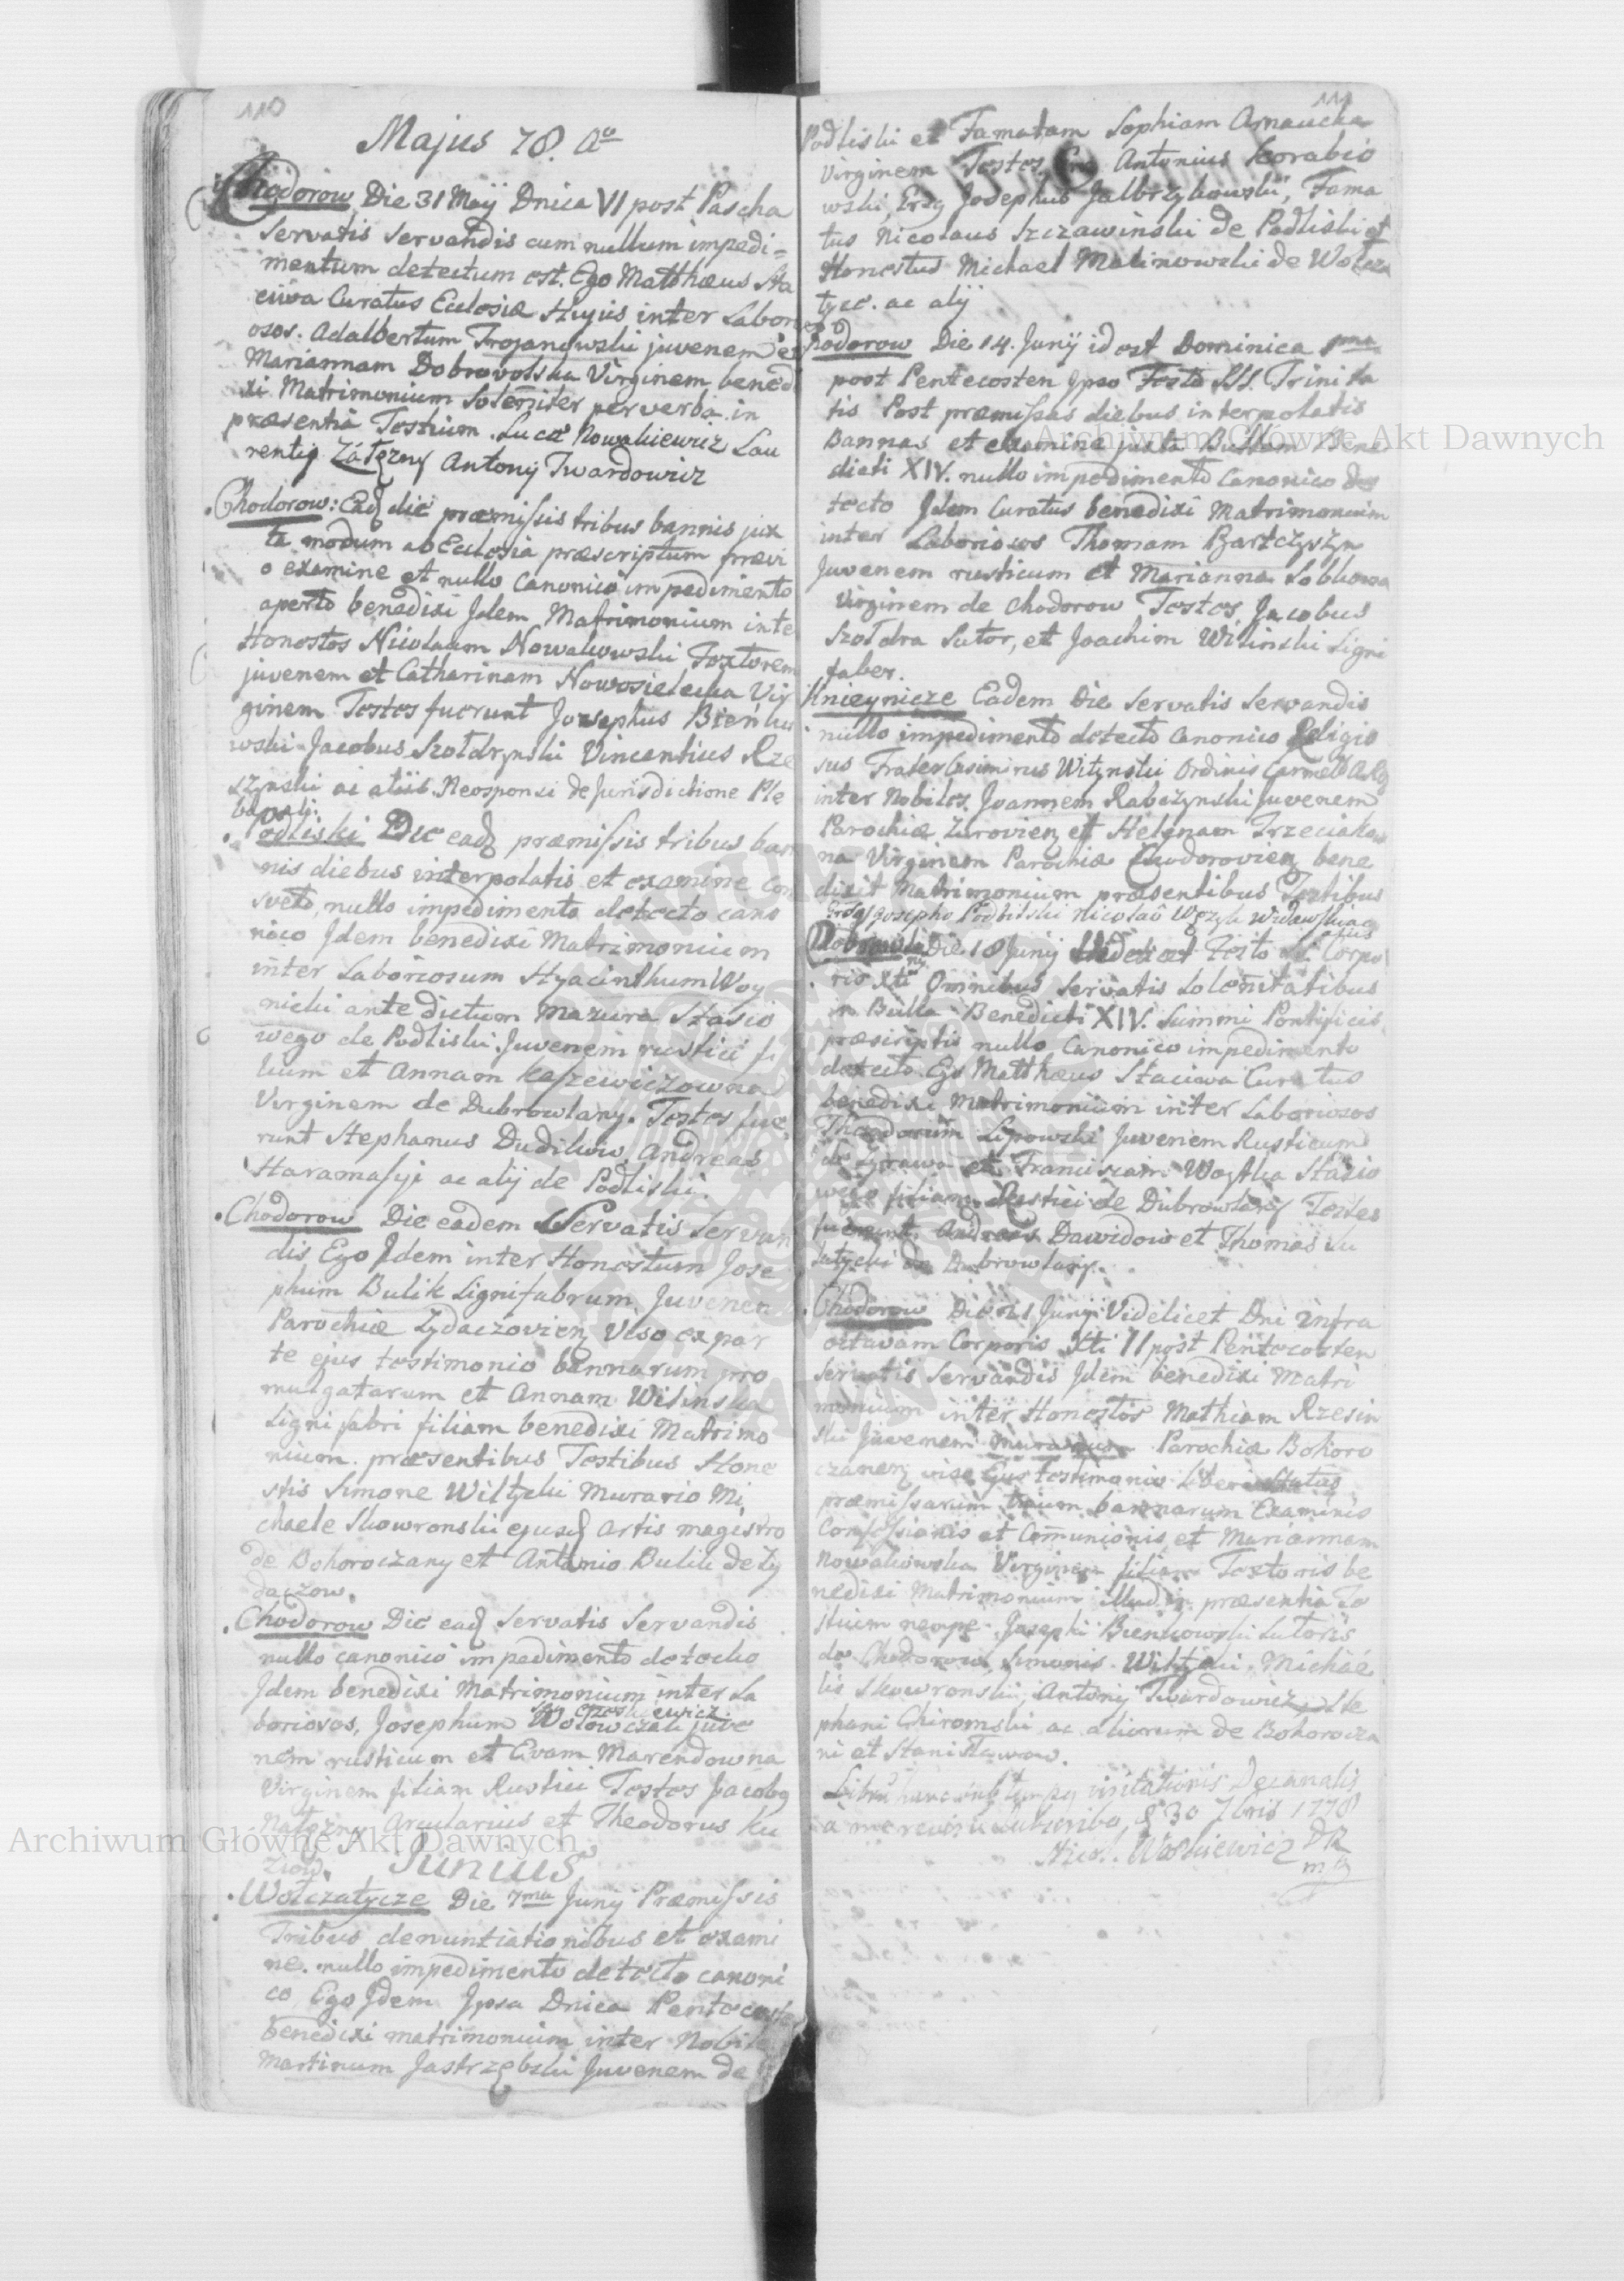 110
Majus 78. Ao
Chodorow Die 31 Maÿ Dnica VI post Pascha
Servatis servandis cum nullum impedi=
mentum detectum est. Ego Matthæus Sta
ciwa Curatus Ecclesiæ Hujus inter Labori
osos. Adalbertum Trojanowski juvenem et
Mariannam Dobrovolska Virginem bened
xi Matrimonium Solemniter per verba in
præsentia Testium. Lucæ Nowakiewicz Lau
rentij Załęzny Antonÿ Twardowicz
Chodorow: Eadg die præmissis tribus bannis jux
ta modum ab Ecclesia præscriptum prævi
o examine et nullo Canonico impedimento
aperto benedixi Idem Matrimonium inte
Honestos Nicolaum Nowakowski Textorem
juvenem et Catharinam Nowosielecka Vir
ginem Testes fuerunt Josephus Bieńko
wski Jacobus Szołdrynski Vincentius Rze
szynski ac aliis. Neosponsi de Jurisdictione Ple
banali.
Podliski Die eadg præmissis tribus ban
nis diebus interpolatis et examine con
sveto, nullo impedimento detecto cano
nico Idem benedixi Matrimonium
inter Laboriosum Hyacinthum Woy
nicki ante dictum Mazura Stasio
wego de Podliski Juvenem rustici fi
lium et Annam Kaszewiczowna
Virginem de Dubrowlany. Testes fue
runt Stephanus Dudikiw, Andreas
Haramasyi ac alij de Podliski.
Chodorow Die eadem Servatis Servan
dis Ego Idem inter Honestum Jose
phum Bulik Lignifabrum Juvenem
Parochiæ Zydaczovieng Viso ex par
te ejus testimonio bannarum pro
mulgatarum et Annam Wisinska
Ligni fabri filiam benedixi Matrimo
nium præsentibus Testibus Hone
stis Simone Wiltzki Murario Mi
chaele Skowronski ejusdg artis magistro
de Bohoroczany et Antonio Bulik de Zy
daczow.
Chodorow Die eadg Servatis Servandis
nullo canonico impedimento detecto
Idem benedixi Matrimonium inter La
boriosos, Josephum Wołowczak juve
nem rusticum et Evam Marendowna
Virginem filiam Rustici Testes Jacobg
Natęzny Arcularius et Theodorus Ku
ziow.
Junius
Wołczatycze Die 7ma Junÿ Præmissis
Tribus denuntiationibus et exami
ne. nullo impedimento detecto canoni
co Ego Idem Ipsa Dnica Pentecoste
benedixi matrimonium inter Nobile
Martinum Jastrzębski Juvenem de
111
Podliski et Famatam Sophiam Arnaucka
Virginem Testes Antonius Korabio
wski, Josephus Jalbrzykowski, Fama
tus Nicolaus Szczawinski de Podliski et
Honestus Michael Malinowski de Wołcza
tycze. ac alÿ
Chodorow Die 14. Junÿ id est Dominica 1ma
post Pentecosten Ipso Festo SSS. Trinita
tis Post præmissas diebus interpolatis
Bannas et examine juxta Bullam Bene
dicti XIV. nullo impedimento Canonico de
tecto Idem Curatus benedixi Matrimonium
inter Laboriosos Thomam Bartczyszyn
Juvenem rusticum et Marianna Sobkowa
Virginem de Chodorow Testes Jacobus
Szołdra Sutor, et Joachim Wisinski Ligni
faber.
Knieynicze Eadem Die Servatis Servandis
nullo impedimento detecto canonico Religio
sus Frater Casimirus Witynski Ordinis Carmelit
inter Nobiles Joannem Rabczynski Juvenem
Parochiæ Zurovieng et Helenam Trzeciakow
na Virginem Parochiæ Chodorovieng bene
dixit Matrimonium præsentibus Testibus
Josepho Podbilski Nicolao
Dobrowlany Die 18 Junÿ Festo Corpo
ris Xti Omnibus Servatis Solemnitatibus
in Bulla Benedicti XIV. Summi Pontificis
præscriptis nullo Canonico impedimento
detecto. Ego Matthæus Staciwa Curatus
benedixi matrimonium inter Laboriosos
Theodorum Lipowski Juvenem Rusticum
et Franciscam Woytka Stasio
wego filiam Rustici de Dubrowlany Testes
fuerunt Andreas Dawidow et Thomas
Dubrowlany.
Chodorow Die 21 Junÿ Videlicet Dni infra
octavam Corporis Xti II post Pentecosten
Servatis Servandis Idem benedixi Matri
monium inter Honestos Mathiam Rzesin
ski juvenem Parochiæ Bohoro
czaneng
præmissarum trium bannarum Examinis
Confessionis et Communionis et Mariannam
Nowakowska Virginem filiam Textoris be
nedixi Matrimonium illud in præsentia Te
stium nempe Josephi Bienkowski Sutoris
de Chodorow Simonis Wiltzki, Michae
lis Skowronski, Antonÿ Twardowicz, Ste
phani Chiromski ac aliorum de Bohorocza
ni et Stanisławow.
visitationis Decanalis
30 7bris 1778
Archiwum Główne Akt Dawnych
Archiwum Główne Akt Dawnych